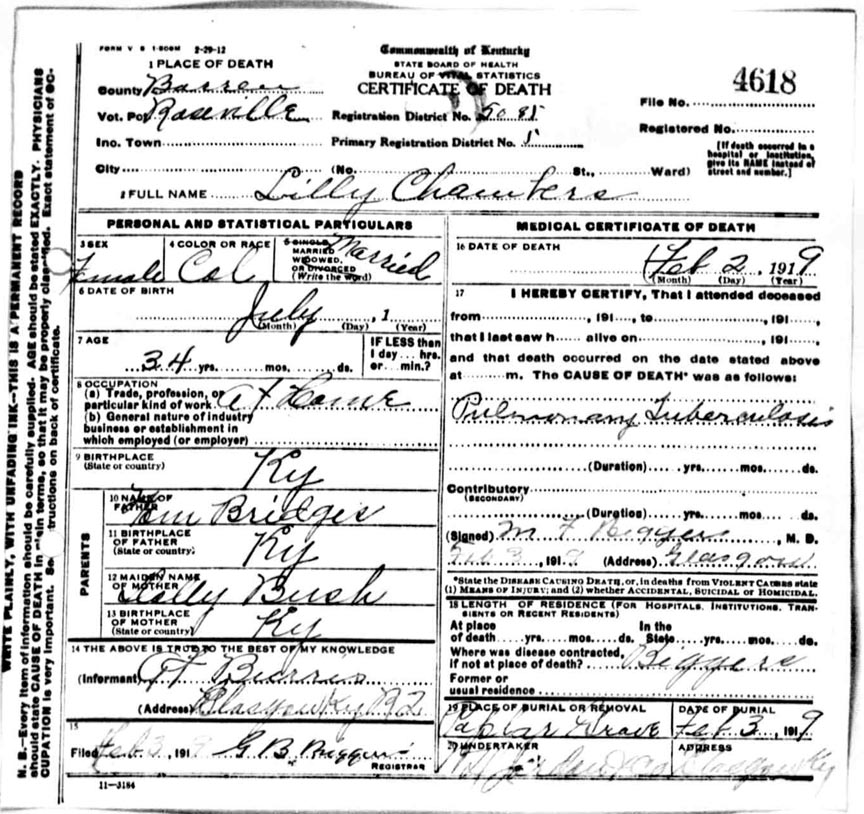 FORM V S 1-500M 2-29-12
Commonwealth of Kentucky
STATE BOARD OF HEALTH
BUREAU OF VITAL STATISTICS
CERTIFICATE OF DEATH
4618
1 PLACE OF DEATH
County Barren
Vot. Pct Roseville
Ino. Town
City (No. St., Ward)
Registration District No.
Primary Registration District No. 5
File No.
Registered No.
[If death occurred in a
hospital or institution,
give its NAME instead of
street and number.]
2 FULL NAME Lilly Chambers
PERSONAL AND STATISTICAL PARTICULARS
3 SEX
Female
4 COLOR OR RACE
Col
5 SINGLE
MARRIED
WIDOWED,
OR DIVORCED
(Write the word)
Married
6 DATE OF BIRTH
July , 1
(Month) (Day) (Year)
7 AGE
34 yrs. mos. ds.
IF LESS than
1 day hrs.
or min.?
8 OCCUPATION
(a) Trade, profession, or
particular kind of work at Home
(b) General nature of industry
business or establishment in
which employed (or employer)
9 BIRTHPLACE
(State or country)
Ky
PARENTS
10 NAME OF
FATHER
Bridges
11 BIRTHPLACE
OF FATHER
(State or country)
Ky
12 MAIDEN NAME
OF MOTHER
Bush
13 BIRTHPLACE
OF MOTHER
(State or country)
Ky
14 THE ABOVE IS TRUE TO THE BEST OF MY KNOWLEDGE
(Informant)
(Address) Glasgow Ky R2
15
Filed Feb 3, 1919 G B
REGISTRAR
11-3184
MEDICAL CERTIFICATE OF DEATH
16 DATE OF DEATH
Feb 2, 1919
(Month) (Day) (Year)
17 I HEREBY CERTIFY, That I attended deceased
from , 191 , to , 191 ,
that I last saw h alive on , 191 ,
and that death occurred on the date stated above
at m. The CAUSE OF DEATH* was as follows:
Pulmonary Tuberculosis
(Duration) yrs. mos. ds.
Contributory
(SECONDARY)
(Duration) yrs. mos. ds.
(Signed) M F Biggers, M. D.
Feb 3, 1919 (Address) Glasgow
*State the DISEASE CAUSING DEATH, or, in deaths from VIOLENT CAUSES state
(1) MEANS OF INJURY; and (2) whether ACCIDENTAL, SUICIDAL or HOMICIDAL.
18 LENGTH OF RESIDENCE (FOR HOSPITALS, INSTITUTIONS, TRAN-
SIENTS OR RECENT RESIDENTS)
At place In the
of death yrs. mos. ds. State yrs. mos. ds.
Where was disease contracted,
if not at place of death? Biggers
Former or
usual residence
19 PLACE OF BURIAL OR REMOVAL
Poplar Grove
DATE OF BURIAL
Feb 3, 1919
20 UNDERTAKER
ADDRESS
Glasgow Ky
N. B.—Every item of information should be carefully supplied. AGE should be stated EXACTLY. PHYSICIANS
should state CAUSE OF DEATH in plain terms, so that it may be properly classified. Exact statement of OC-
CUPATION is very important. See instructions on back of certificate.
WRITE PLAINLY, WITH UNFADING INK—THIS IS A PERMANENT RECORD